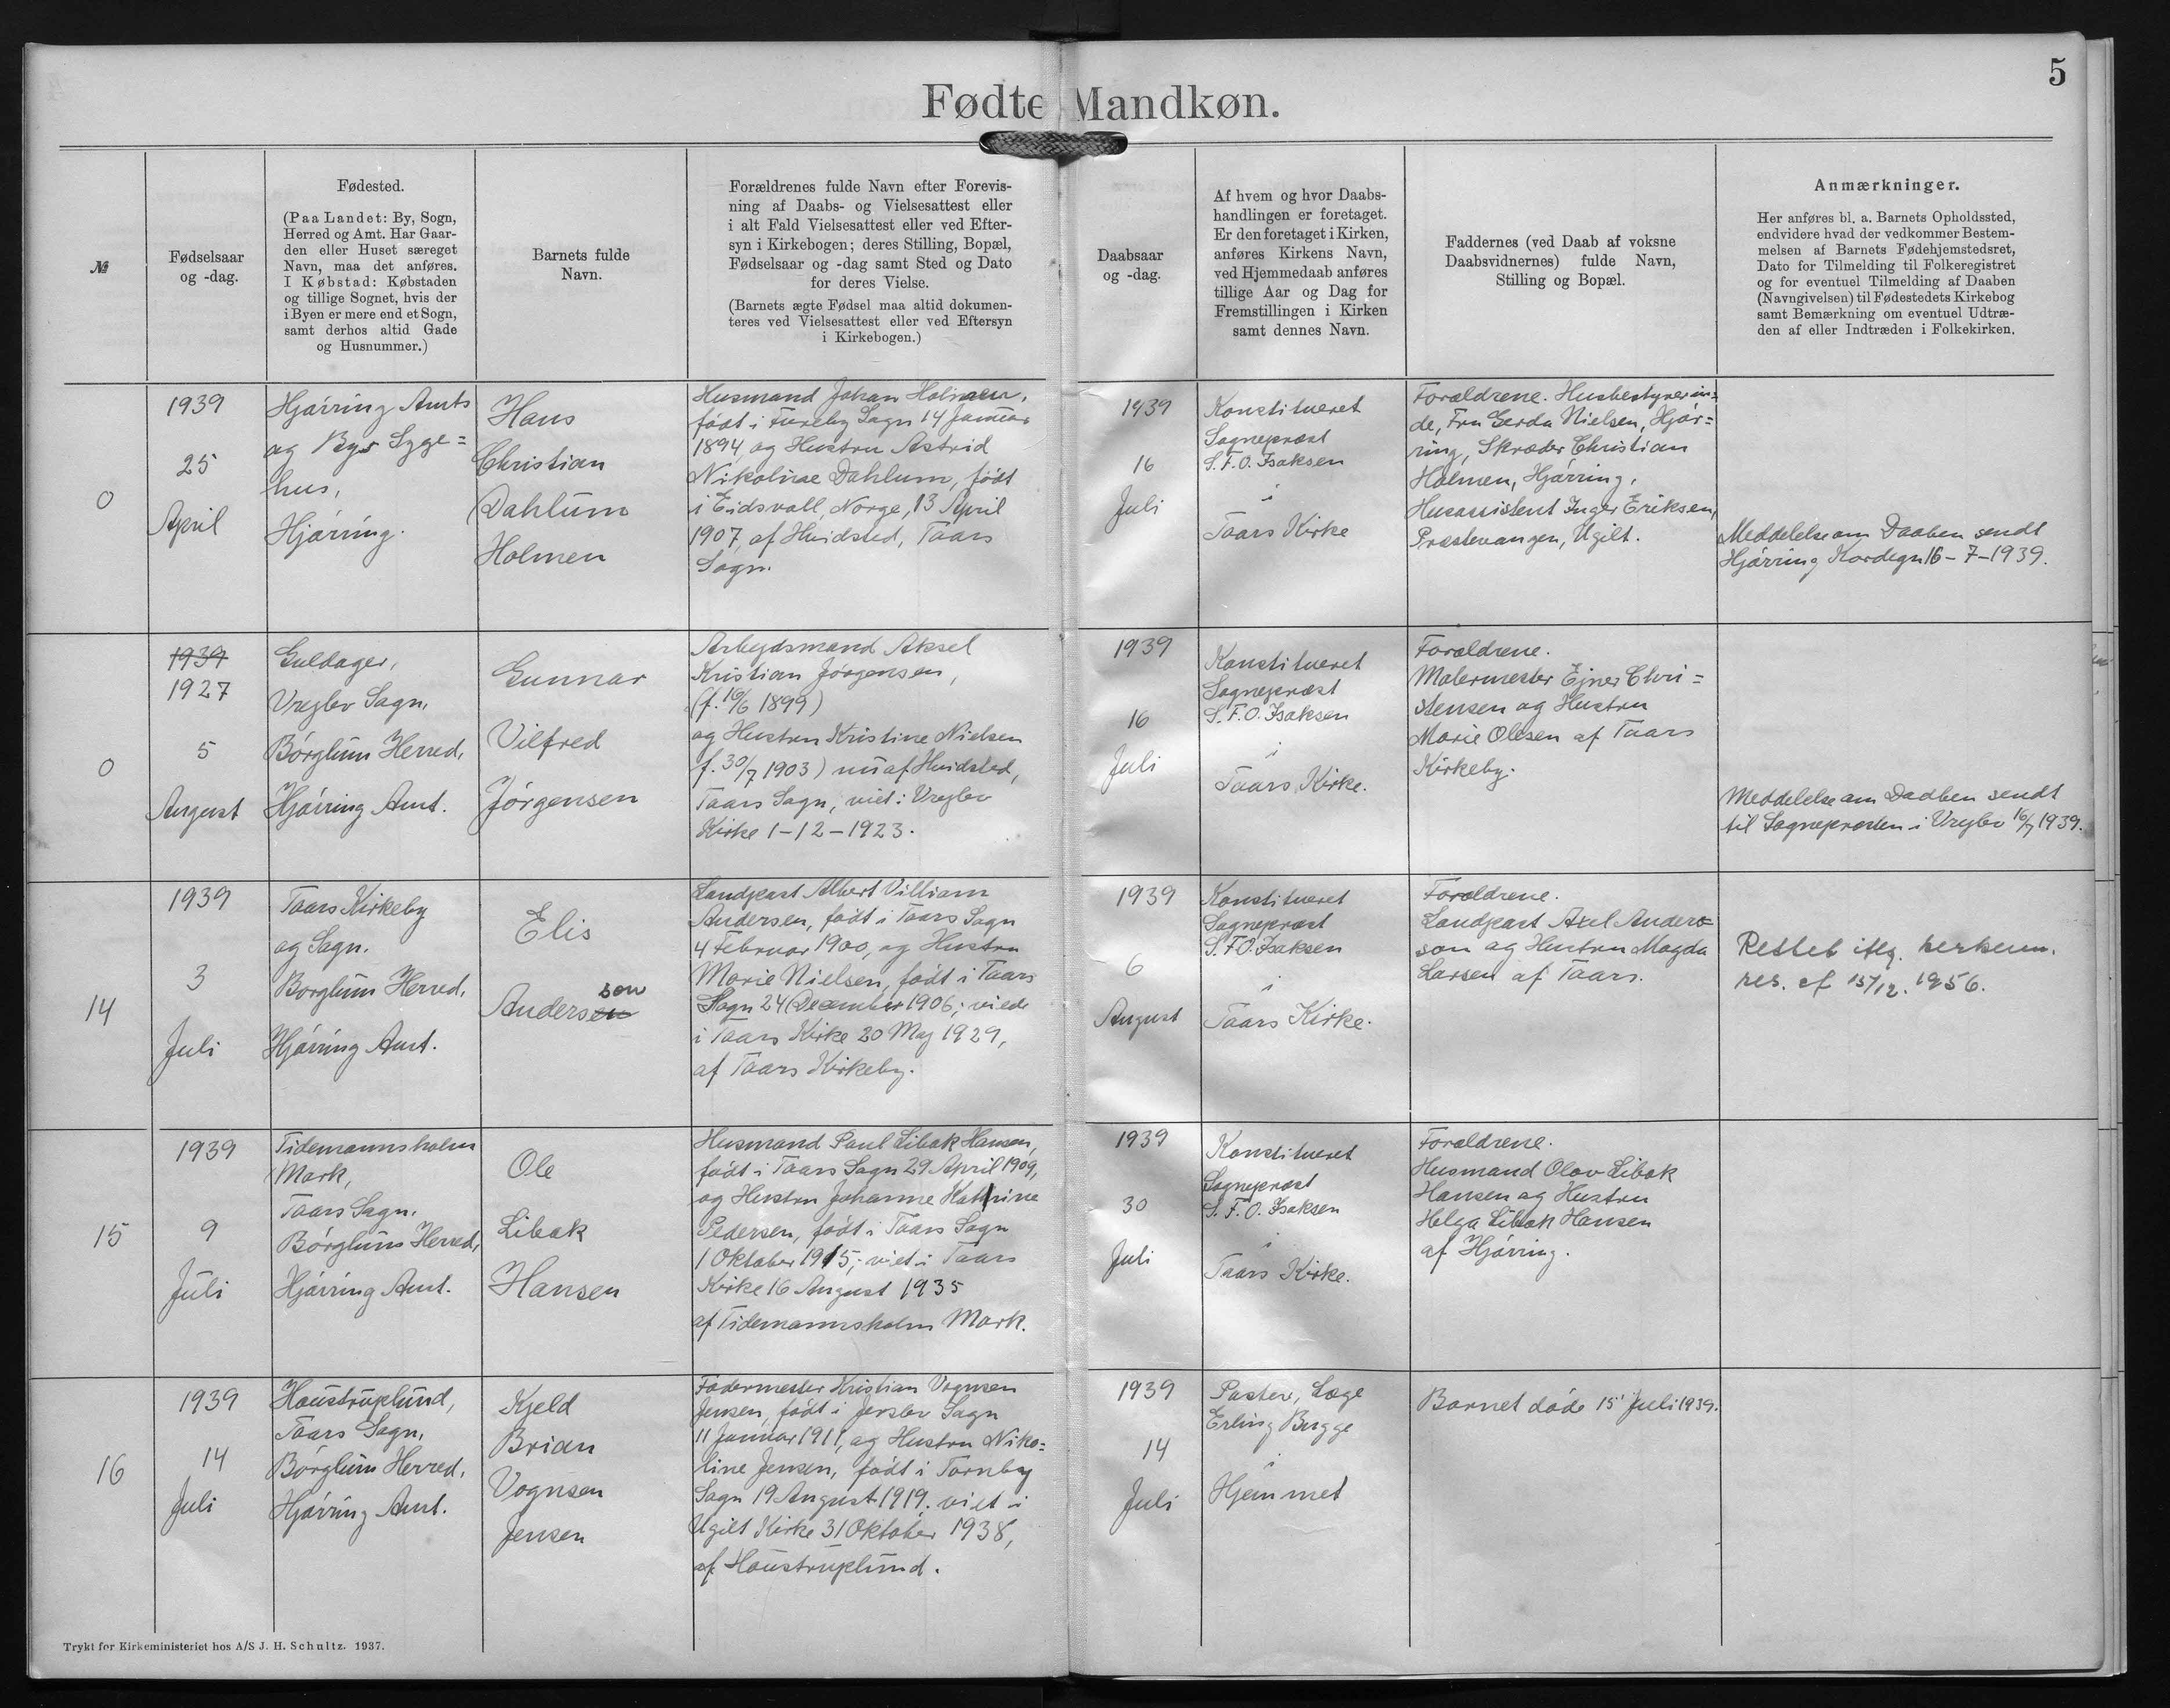 5
Fødte Mandkøn.
№
Fødselsaar
og -dag.
Fødested.
(Paa Landet: By, Sogn,
Herred og Amt. Har Gaar-
den eller Huset særeget
Navn, maa det anføres.
I Købstad: Købstaden
og tillige Sognet, hvis der
i Byen er mere end et Sogn,
samt derhos altid Gade
og Husnummer.)
Barnets fulde
Navn.
Forældrenes fulde Navn efter Forevis-
ning af Daabs- og Vielsesattest eller
i alt Fald Vielsesattest eller ved Efter-
syn i Kirkebogen; deres Stilling, Bopæl,
Fødselsaar og -dag samt Sted og Dato
for deres Vielse.
(Barnets ægte Fødsel maa altid dokumen-
teres ved Vielsesattest eller ved Eftersyn
i Kirkebogen.)
Daabsaar
og -dag.
Af hvem og hvor Daabs-
handlingen er foretaget.
Er den foretaget i Kirken,
anføres Kirkens Navn,
ved Hjemmedaab anføres
tillige Aar og Dag for
Fremstillingen i Kirken
samt dennes Navn.
Faddernes (ved Daab af voksne
Daabsvidnernes) fulde Navn,
Stilling og Bopæl.
Anmærkninger.
Her anføres bl. a. Barnets Opholdssted,
endvidere hvad der vedkommer Bestem-
melsen af Barnets Fødehjemstedsret,
Dato for Tilmelding til Folkeregistret
og for eventuel Tilmelding af Daaben
(Navngivelsen) til Fødestedets Kirkebog
samt Bemærkning om eventuel Udtræ-
den af eller Indtræden i Folkekirken.
0
1939
25
April
Hjørring Amts
og Bys Syge=
hus,
Hjørring.
Hans
Christian
Dahlum
Holmen
Husmand Johan Holmen,
født i Fureby Sogn 14 Januar
1894, og Hustru Astrid
Nikoline Dahlum, født
i Eidsvoll, Norge, 13 April
1907, af Hvidsted, Taars
Sogn.
1939
16
Juli
Konstitueret
Sognepræst
S. F. O. Isaksen
i
Taars Kirke
Forældrene. Husbestyrerin=
de, Fru Gerda Nielsen, Hjør=
ring, Skræder Christian
Holmen, Hjørring,
Husassistent Inger Eriksen,
Præstevangen, Ugilt.
Meddelelse om Daaben sendt
Hjørring Kordegn 16-7-1939.
0
1939
1927
5
August
Guldager,
Vrejlev Sogn,
Børglum Herred,
Hjørring Amt.
Gunnar
Vilfred
Jørgensen
Arbejdsmand Aksel
Kristian Jørgensen,
(f. 16/6 1899)
og Hustru Kristine Nielsen
f. 30/7 1903) nu af Hvidsted,
Taars Sogn, viet i Vrejlev
Kirke 1-12-1923.
1939
16
Juli
Konstitueret
Sognepræst
S. F. O. Isaksen
i
Taars Kirke.
Forældrene.
Malermester Ejner Chri=
stensen og Hustru
Marie Olesen af Taars
Kirkeby.
Meddelelse om Daaben sendt
til Sognepræsten i Vrejlev 16/7 1939.
14
1939
3
Juli
Taars Kirkeby
og Sogn.
Børglum Herred,
Hjørring Amt.
Elis
son
Andersen
Landpost Albert Villiam
Andersen, født i Taars Sogn
4 Februar 1900, og Hustru
Marie Nielsen, født i Taars
Sogn 24 December 1906; viede
i Taars Kirke 20 Maj 1929,
af Taars Kirkeby.
1939
6
August
Konstitueret
Sognepræst
S. F. O. Isaksen
i
Taars Kirke.
Forældrene.
Landpost Axel Anders-
son og Hustru Magda
Larsen af Taars.
Rettet iflg. kirkemin.
res. af 15/12. 1956.
15
1939
9
Juli
Tidemannsholm
Mark,
Taars Sogn.
Børglum Herred,
Hjørring Amt.
Ole
Libak
Hansen
Husmand Poul Libak Hansen,
født i Taars Sogn 29 April 1909,
og Hustru Johanne Kathrine
Pedersen, født i Taars Sogn
1 Oktober 1915; viet i Taars
Kirke 16 August 1935
af Tidemannsholm Mark.
1939
30
Juli
Konstitueret
Sognepræst
S. F. O. Isaksen
i
Taars Kirke.
Forældrene.
Husmand Olav Libak
Hansen og Hustru
Helga Libak Hansen
af Hjørring.
16
1939
14
Juli
Haustruplund,
Taars Sogn,
Børglum Herred,
Hjørring Amt.
Kjeld
Brian
Vognsen
Jensen
Fodermester Kristian Vognsen
Jensen, født i Jerslev Sogn
11 Januar 1911, og Hustru Niko=
line Jensen, født i Tornby
Sogn 19 August 1919. viet i
Ugilt Kirke 31 Oktober 1938,
af Haustruplund.
1939
14
Juli
Pastor, Læge
Erling Bugge
i
Hjemmet
Barnet døde 15 Juli 1939.
Trykt for Kirkeministeriet hos A/S J. H. Schultz. 1937.